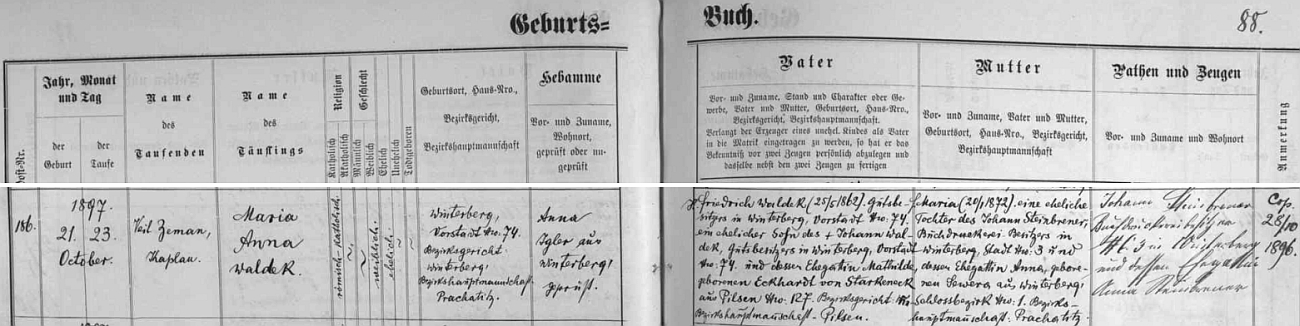 Geburts=
Buch.
88.
Post-Nr.
Jahr, Monat
und Tag
der
Geburt
der
Taufe
Name
des
Taufenden
Name
des
Täuflings
Religion
Katholisch
Akatholisch
Geschlecht
Männlich
Weiblich
Ehelich
Unehelich
Todtgeboren
Geburtsort, Haus-Nro.,
Bezirksgericht,
Bezirkshauptmannschaft
Hebamme
Vor- und Zuname,
Wohnort,
geprüft oder un-
geprüft
Vater
Vor- und Zuname, Stand und Charakter oder Ge-
werbe, Vater und Mutter, Geburtsort, Haus-Nro.,
Bezirksgericht, Bezirkshauptmannschaft.
Verlangt der Erzeuger eines unehel. Kindes als Vater
in die Matrik eingetragen zu werden, so hat er das
Bekenntniß vor zwei Zeugen persönlich abzulegen und
dasselbe nebst den zwei Zeugen zu fertigen
Mutter
Vor- und Zuname, Vater und Mutter,
Geburtsort, Haus-Nro., Bezirksgericht,
Bezirkshauptmannschaft
Pathen und Zeugen
Vor- und Zuname und Wohnort
Anmerkung
186.
1897.
21. 23.
October.
Veit Zeman,
Kaplan.
Maria
Anna
Waldek.
römisch-katholisch.
weiblich.
ehelich.
Winterberg,
Vorstadt Nro. 74.
Bezirksgericht
Winterberg,
Bezirkshauptmannschaft
Prachatitz.
Anna
Igler aus
Winterberg,
geprüft.
Friedrich Waldek (25/5 1862). Gutsbe-
sitzer in Winterberg, Vorstadt Nro. 74.
ein ehelicher Sohn des + Johann Wal-
dek, Gutsbesitzers in Winterberg, Vorstadt
Nro. 74. und dessen Ehegattin Mathilde,
geborenen Eckhardt von Starkeneck
aus Pilsen Nro. 127. Bezirksgericht
Bezirkshauptmannschaft Pilsen.
Maria (20/1 1872). eine eheliche
Tochter des Johann Steinbrener,
Buchdruckerei Besitzers in
Winterberg, Stadt Nro. 3 und
dessen Ehegattin Anna, gebore-
nen Sewera aus Winterberg,
Schlossbezirk Nro. 1. Bezirks-
hauptmannschaft: Prachatitz.
Johann Steinbrener
Buchdruckereibesitzer
N. 3 in Winterberg
und dessen Ehegattin
Anna Steinbrener
Cop.
28/10
1896.